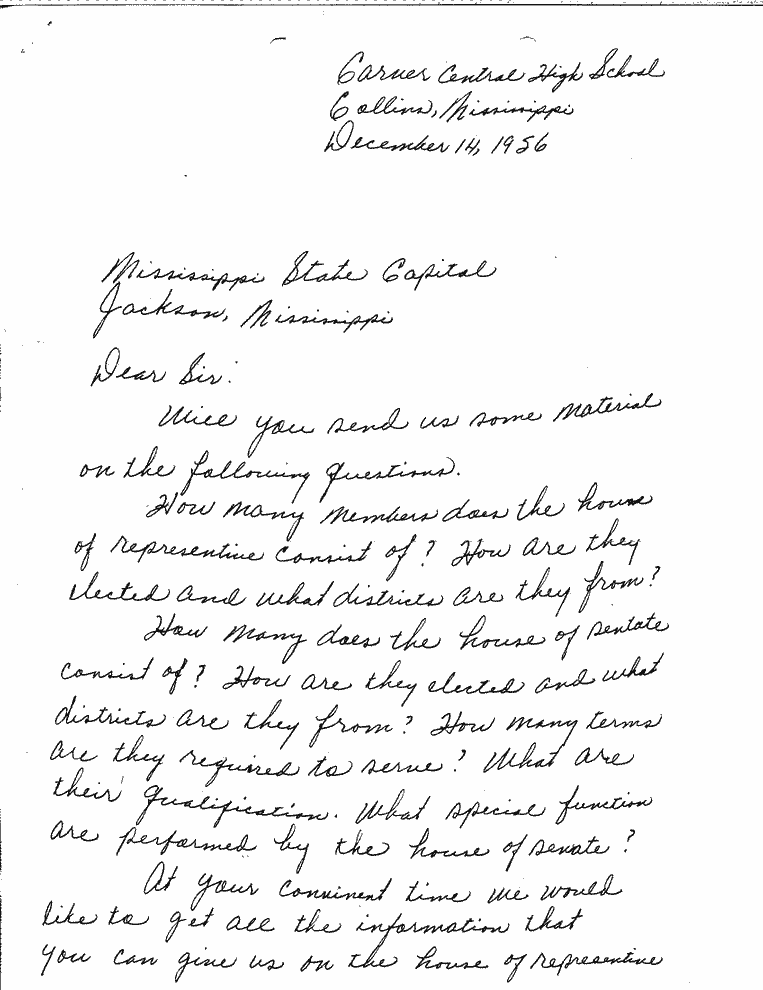 Carver Central High School
Collins, Mississippi
December 14, 1956
Mississippi State Capital
Jackson, Mississippi
Dear Sir:
Will you send us some material
on the following questions.
How many members does the house
of representive consist of? How are they
elected and what districts are they from?
How many does the house of sentate
consist of? How are they elected and what
districts are they from? How many terms
are they required to serve? What are
their qualification. What special function
are performed by the house of senate?
At your convinent time we would
like to get all the information that
you can give us on the house of representive